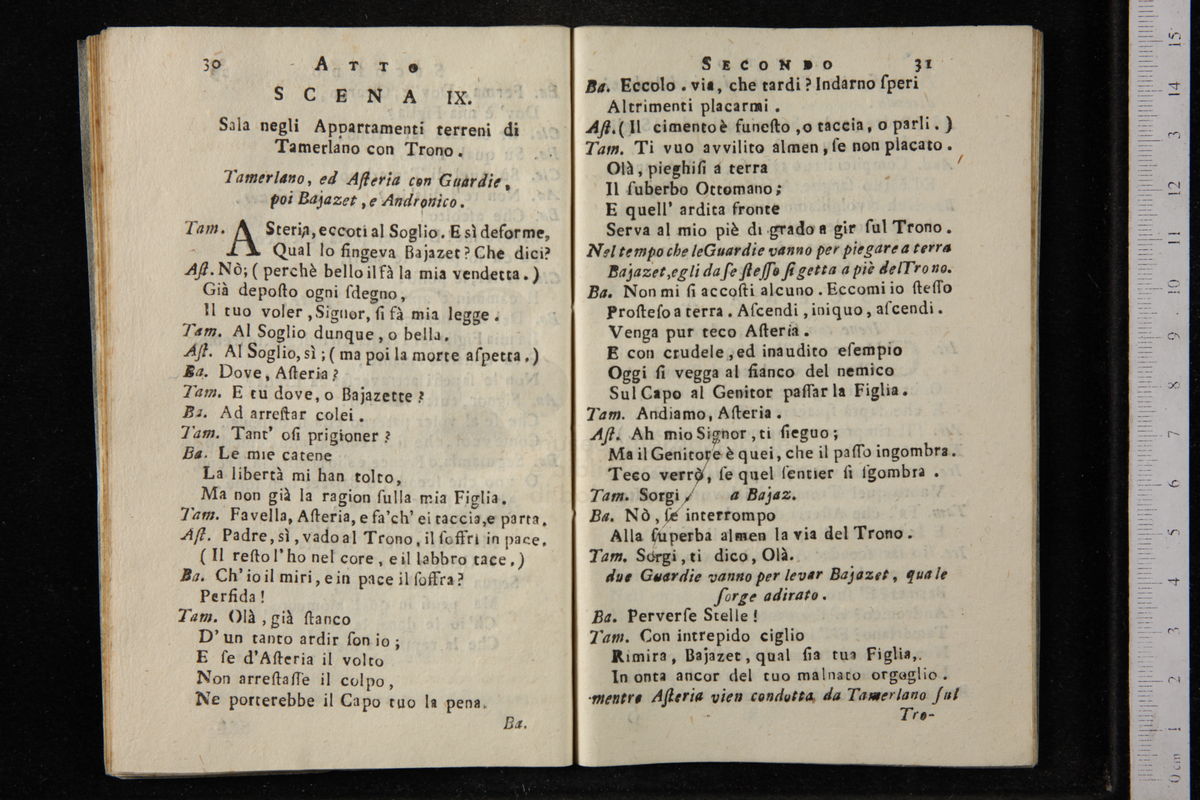 30 ATTO
SCENA IX.
Sala negli Appartamenti terreni di
Tamerlano con Trono.
Tamerlano, ed Aſteria con Guardie,
poi Bajazet, e Andronico.
Tam. ASteria, eccoti al Soglio. E sì deforme,
Qual lo fingeva Bajazet? Che dici?
Aſt. Nò; (perchè bello il fà la mia vendetta.)
Già depoſto ogni ſdegno,
Il tuo voler, Signor, ſi fà mia legge.
Tam. Al Soglio dunque, o bella.
Aſt. Al Soglio, sì; (ma poi la morte aſpetta.)
Ba. Dove, Aſteria?
Tam. E tu dove, o Bajazette?
Ba. Ad arreſtar colei.
Tam. Tant' oſi prigioner?
Ba. Le mie catene
La libertà mi han tolto,
Ma non già la ragion ſulla mia Figlia.
Tam. Favella, Aſteria, e fa'ch' ei taccia, e parta.
Aſt. Padre, sì, vado al Trono, il ſoffri in pace.
(Il reſto l'ho nel core, e il labbro tace.)
Ba. Ch' io il miri, e in pace il ſoffra?
Perfida!
Tam. Olà, già ſtanco
D' un tanto ardir ſon io;
E ſe d'Aſteria il volto
Non arreſtaſſe il colpo,
Ne porterebbe il Capo tuo la pena.
Ba.
SECONDO 31
Ba. Eccolo. via, che tardi? Indarno ſperi
Altrimenti placarmi.
Aſt. (Il cimento è funeſto, o taccia, o parli.)
Tam. Ti vuo avvilito almen, ſe non placato.
Olà, pieghiſi a terra
Il ſuberbo Ottomano;
E quell' ardita fronte
Serva al mio piè di grado a gir ſul Trono.
Nel tempo che le Guardie vanno per piegare a terra
Bajazet, egli da ſe ſteſſo ſi getta a piè del Trono.
Ba. Non mi ſi accoſti alcuno. Eccomi io ſteſſo
Proſteſo a terra. Aſcendi, iniquo, aſcendi.
Venga pur teco Aſteria.
E con crudele, ed inaudito eſempio
Oggi ſi vegga al fianco del nemico
Sul Capo al Genitor paſſar la Figlia.
Tam. Andiamo, Aſteria.
Aſt. Ah mio Signor, ti ſieguo;
Ma il Genitore è quei, che il paſſo ingombra.
Teco verrò, ſe quel ſentier ſi ſgombra.
Tam. Sorgi. a Bajaz.
Ba. Nò, ſe interrompo
Alla ſuperba almen la via del Trono.
Tam. Sorgi, ti dico, Olà.
due Guardie vanno per levar Bajazet, quale
ſorge adirato.
Ba. Perverſe Stelle!
Tam. Con intrepido ciglio
Rimira, Bajazet, qual ſia tua Figlia,
In onta ancor del tuo malnato orgoglio.
mentre Aſteria vien condotta da Tamerlano ſul
Tro-
0 cm 1 2 3 4 5 6 7 8 9 10 11 12 13 14 15